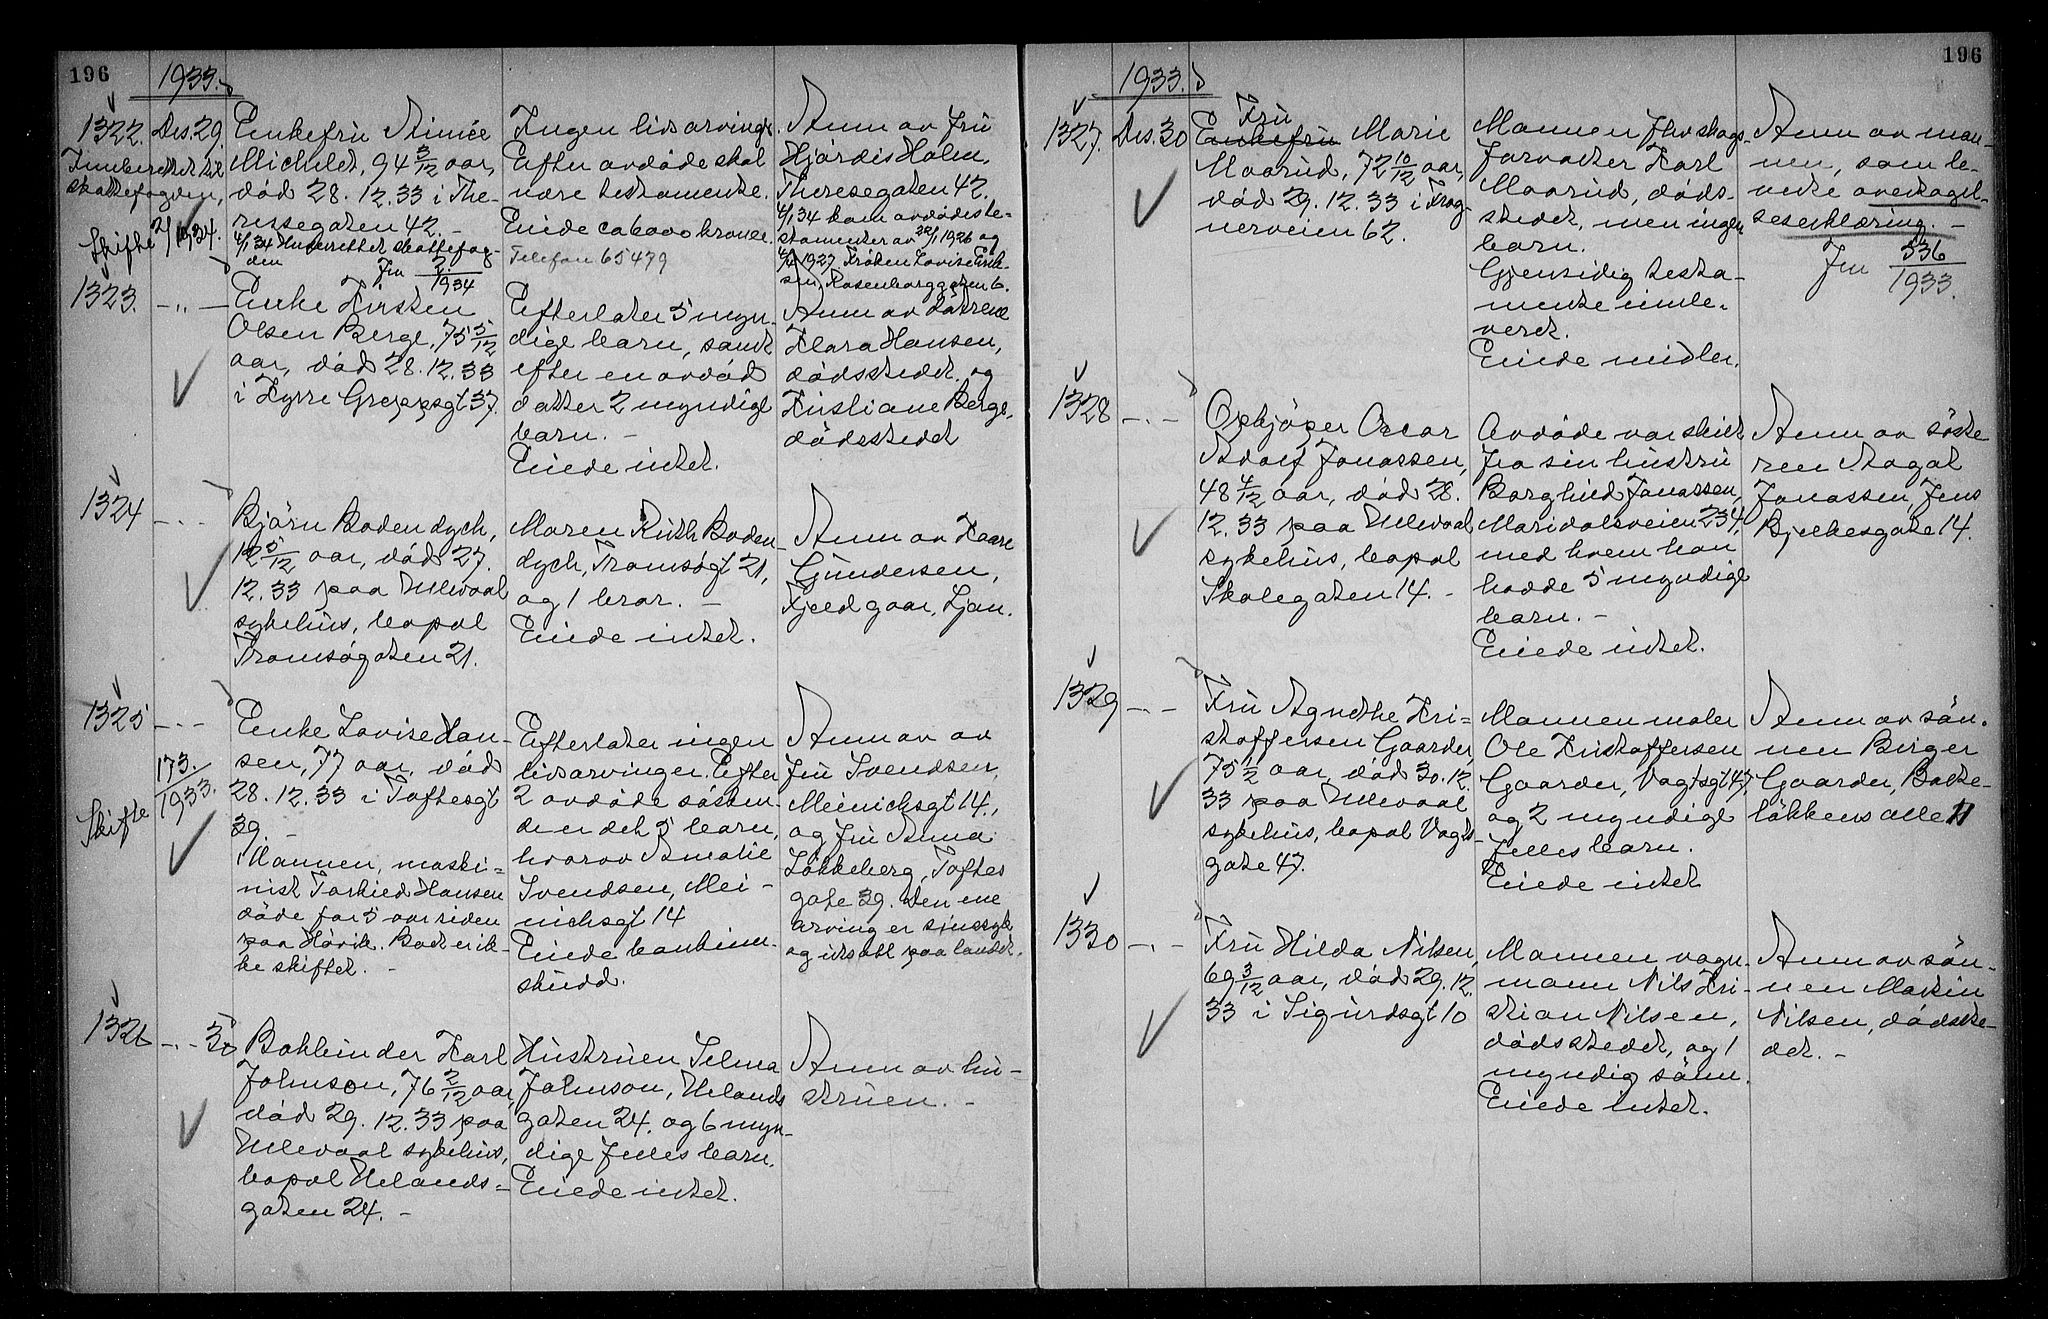 196
1933.
1322. Des. 29.
Innberettet til
skattefogden,
2/1 1934.
Skifte
Enkefru Aimée
Michelet, 94 3/12 aar,
död 28.12.33 i The-
ressegaten 42. -
4/1 34 Innberettet skattefog-
den
Jnr 2/1934
Ingen livsarvinger.
Efter avdöde skal
være testamente.
Eiede ca 6000 kroner.
Telefon 65479
Anm av fru
Hjördis Holm,
Theresegaten 42.
4/1 34 kom avdödes te-
stamenter av 1926 og
1927 Fröken Lovise Erik-
sen, Rosenborggaten 6.
1323. - " -
Enke Kirsten
Olsen Berge, 75 5/12
aar, död 28.12.33
i Kyrre Greppsgt 37.
Efterlater 5 myn-
dige barn, samt
efter en avdöd
datter 2 myndige
barn. -
Eiede intet.
Anm av døtrene
Klara Hansen,
dödsstedet, og
Kristiane Berge,
dödsstedet
1324 - " -
Björn Bodendych,
12 5/12 aar, död 27.
12.33 paa Ullevaal
sykehus, bopæl
Tromsögaten 21.
Moren Ruth Boden-
dych, Tromsøgt 21,
og 1 bror. -
Eiede intet.
Anm av Kaare
Gundersen,
Fjeldgaar, Ljan.
1325 - " -
173.
1933.
Skifte
Enke Lovise Han-
sen, 77 aar, död
28.12.33 i Toftesgt
39. -
Mannen, maski-
nist Torkied Hansen
döde for 5 aar siden
paa Hövik. Boet er ik-
ke skiftet. -
Efterlater ingen
livsarvinger. Efter
2 avdöde söskn-
de er det 5 barn,
hvorav Amalie
Svendsen, Mei-
nichsgt 14
Eiede bankinn-
skudd.
Anm av av
fru Svendsen,
Meinichsgt 14.,
og fru Anna
Lökkeberg, Toftes
gate 39. Den ene
arving er sinssyk
og utsatt paa landet.
1326 - " - 30
Bokbinder Karl
Johnson, 76 2/12 aar,
död 29.12.33 paa
Ullevaal sykehus,
bopæl Uelands-
gaten 24. -
Hustruen Selma
Johnson, Uelands
gaten 24. og 6 myn-
dige felles barn.
Eiede intet.
Anm av hu-
struen. -
196
1933.
1327. Des. 30
Fru
Enkefru Marie
Moarud, 72 10/12 aar,
död 29.12.33 i Frog-
nerveien 62.
Mannen fhv skogs-
forvalter Karl
Moarud, döds-
stedet, men ingen
barn.
Gjensidig testa-
mente innle-
vert.
Eiede midler.
Anm av man-
nen, som le-
verte overtagel-
seserklæring. -
Jnr 536
1933.
1328 - " -
Opkjöper Oscar
Adolf Jonassen,
48 4/12 aar, död 28.
12.33 paa Ullevaal
sykehus, bopæl
Skolegaten 14. -
Avdöde var skilt
fra sin hustru
Borghild Jonassen,
Maridalsveien 234,
med hvem han
hadde 5 myndige
barn. -
Eiede intet.
Anm av söste
ren Aagot
Jonassen, Jens
Bjelkesgate 14.
1329 - " -
Fru Agnethe Kri-
stoffersen Gaarder,
75 1/2 aar, död 30.12.
33 paa Ullevaal
sykehus, bopæl Vogts-
gate 47.
Mannen maler
Ole Kristoffersen
Gaarder, Vogtsgt 47,
og 2 myndige
felles barn.
Eiede intet
Anm av sön-
nen Birger
Gaarder, Bakke-
lökkens alle 11
1330 - " -
Fru Hilda Nilsen,
69 3/12 aar, död 29.12.
33 i Sigurdsgt 10
Mannen vogn-
mann Nils Kri-
stian Nilsen,
dödsstedet, og 1
myndig sönn.
Eiede intet.
Anm av sön-
nen Martin
Nilsen, dödsste-
det. -